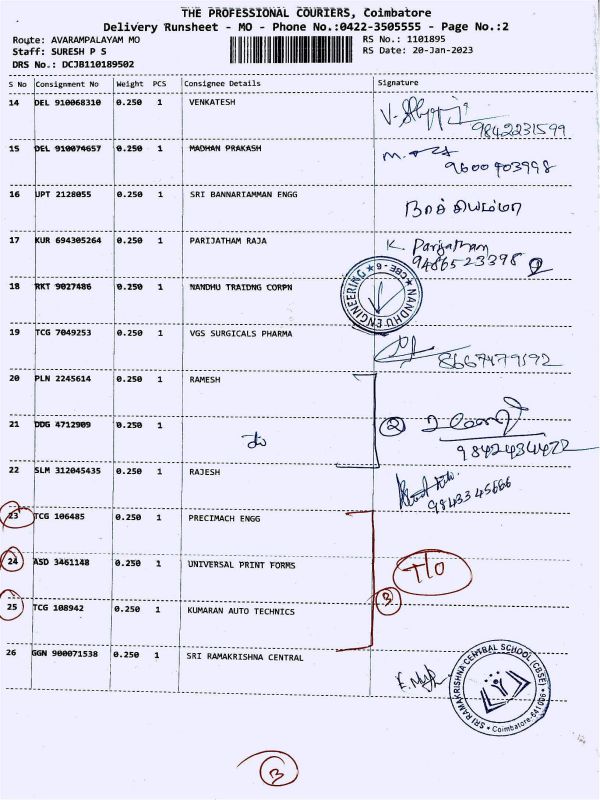 THE PROFESSIONAL COURIERS, Coimbatore
Delivery Runsheet - MO - Phone No.:0422-3505555 - Page No.:2
Route: AVARAMPALAYAM MO RS No.: 1101895
Staff: SURESH P S RS Date: 20-Jan-2023
DRS No.: DCJB110189502
S No Consignment No Weight PCS Consignee Details Signature
14 DEL 910068310 0.250 1 VENKATESH
9842231599
15 DEL 910074657 0.250 1 MADHAN PRAKASH
9600403998
16 UPT 2128055 0.250 1 SRI BANNARIAMMAN ENGG
17 KUR 694305264 0.250 1 PARIJATHAM RAJA K. Parijatham
9486523398
18 RKT 9027486 0.250 1 NANDHU TRAIDNG CORPN
NANDHU ENGINEERING ★ CBE - 6 ★
19 TCG 7049253 0.250 1 VGS SURGICALS PHARMA
8667479192
20 PLN 2245614 0.250 1 RAMESH
21 DDG 4712909 0.250 1 2
9842434422
22 SLM 312045435 0.250 1 RAJESH
9843345666
23 TCG 106485 0.250 1 PRECIMACH ENGG
24 ASD 3461148 0.250 1 UNIVERSAL PRINT FORMS T/O
25 TCG 108942 0.250 1 KUMARAN AUTO TECHNICS 3
26 GGN 900071538 0.250 1 SRI RAMAKRISHNA CENTRAL
SRI RAMAKRISHNA CENTRAL SCHOOL (CBSE)
Coimbatore-641006
3